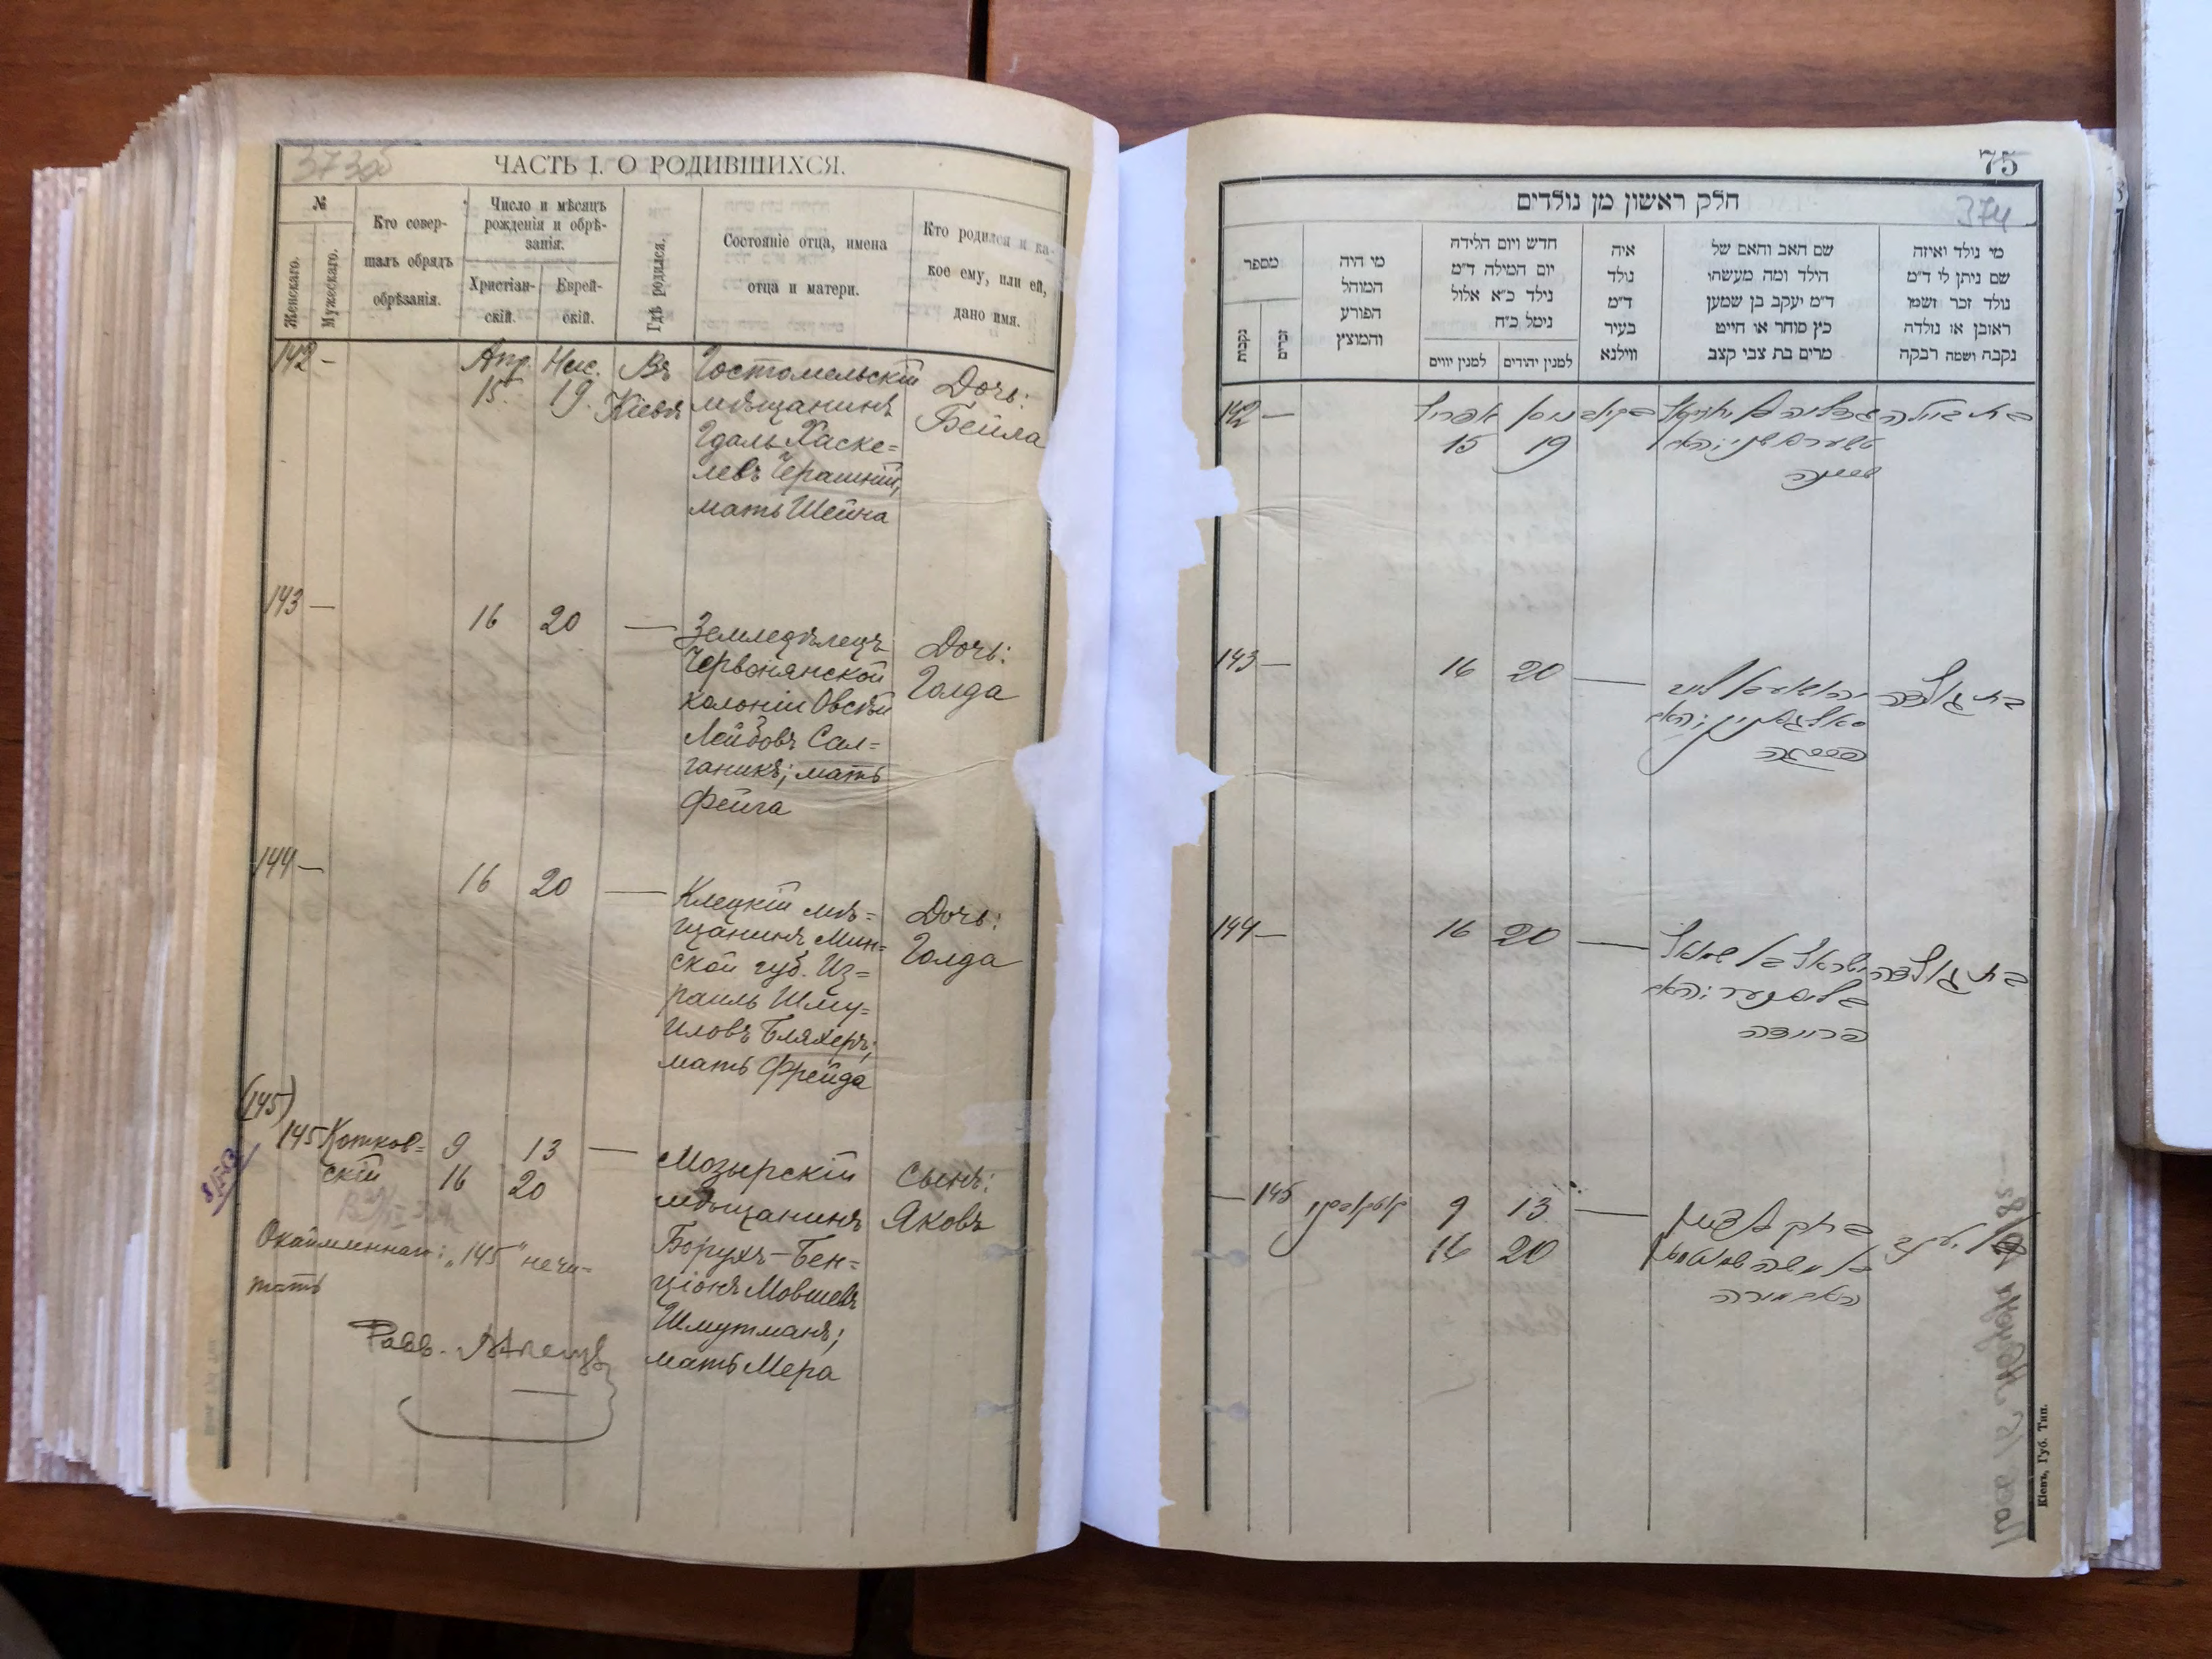 373об
ЧАСТЬ I. О РОДИВШИХСЯ.
№
Женскаго.
Мужескаго.
Кто совер-
шалъ обрядъ
обрѣзанія.
Число и мѣсяцъ
рожденія и обрѣ-
занія.
Христіан-
скій.
Еврей-
скій.
Гдѣ родился.
Состояніе отца, имена
отца и матери.
Кто родился и ка-
кое ему, или ей,
дано имя.
142 —
Апр.
15.
Нис.
19.
Въ
Кіевѣ
Гостомельскій
мѣщанинъ
Гдаль Хаске-
левъ
мать Шейна
Дочь:
Бейла
143 —
16
20
—
Земледѣлецъ
Червонянской
колоніи Овсѣй
Лейбовъ Сал-
ганикъ; мать
Фейга
Дочь:
Голда
144 —
16
20
—
Клецкій мѣ-
щанинъ Мин-
ской губ. Из-
раиль Шму-
иловъ Бляхеръ;
мать Фрейда
Дочь:
Голда
(145)
145
Котков-
скій
9
16
13
20
—
Мозырскій
мѣщанинъ
Борухъ-Бен-
ціонъ Мовшевъ
Шмутманъ;
мать Мера
Сынъ:
Яковъ
Окаймленнаго: „145“ не чи-
тать
Равв.
75
374
חלק ראשון מן נולדים
מספר
נקבות
זכרים
מי היה
המוהל
הפורע
והמוצץ
חדש ויום הלידה
יום המילה ד״מ
נילד כ״א אלול
ניטל כ״ח
למנין יווים
למנין יהודים
איה
נולד
ד״מ
בעיר
ווילנא
שם האב והאם של
הילד ומה מעשהו
ד״מ יעקב בן שמען
כץ סוחר או חייט
מרים בת צבי קצב
מי נולד ואיזה
שם ניתן לי ד״מ
נולד זכר ושמו
ראובן או נולדה
נקבה ושמה רבקה
142 —
אפריל
15
ניסן
19
בקיוב
גדליה בן יחזקאל
והאם
שיינה
בת ביילה
143 —
16
20
—
יהושע בן ליב
סאלגאניק והאם
פייגה
בת גאלדה
144 —
16
20
—
ישראל בן שמואל
בליאכער והאם
פריידה
בת גאלדה
— 145
קוטקובסקי
9
16
13
20
—
ברוך בן ציון
בן משה שמוטמאן
והאם מירה
בן יעקב
Кіевъ, Губ. Тип.